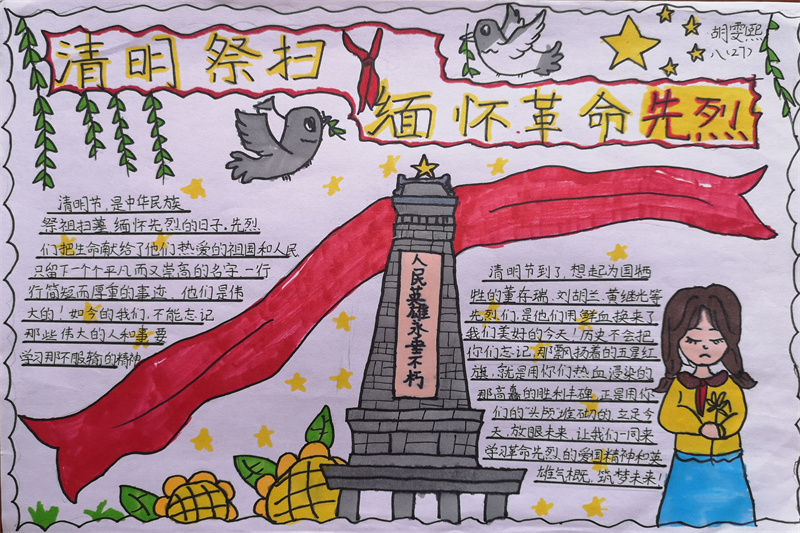 清明祭扫
缅怀革命先烈
胡雯熙
八(27)
清明节,是中华民族
祭祖扫墓,缅怀先烈的日子.先烈
们把生命献给了他们热爱的祖国和人民
只留下一个个平凡而又崇高的名字,一行
行简短而厚重的事迹,他们是伟
大的!如今的我们,不能忘记
那些伟大的人和事要
学习那不服输的精神
人民英雄永垂不朽
清明节到了,想起为国牺
牲的董存瑞、刘胡兰、黄继光等
先烈们,是他们用鲜血换来了
我们美好的今天!历史不会把
你们忘记,那飘扬着的五星红
旗,就是用你们热血浸染的
那高矗的胜利丰碑,正是用你
们的头颅堆砌的.立足今
天,放眼未来,让我们一同来
学习革命先烈的爱国精神和英
雄气概,筑梦未来!